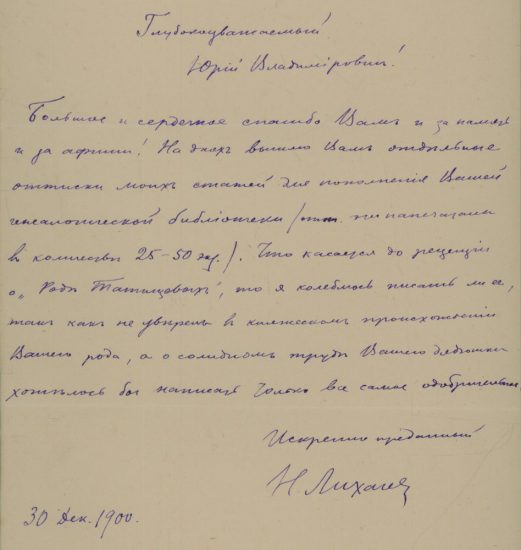 Глубокоуважаемый
Юрій Владиміровичъ!
Большое и сердечное спасибо Вамъ и за память
и за афиши! На дняхъ вышлю Вамъ отдѣльные
оттиски моихъ статей для пополненія Вашей
генеалогической библіотеки / напечатаны
в количествѣ 25-50 экз. /. Что касается до рецензіи
о „Родѣ Татищевыхъ“, то я колеблюсь писать ли ее,
такъ какъ не увѣренъ в княжескомъ происхожденіи
Вашего рода, а о солидномъ трудѣ Вашего дядюшки
хотѣлось бы написать только все самое одобрительное.
Искренно преданный
Н. Лихачев
30 Дек. 1900.